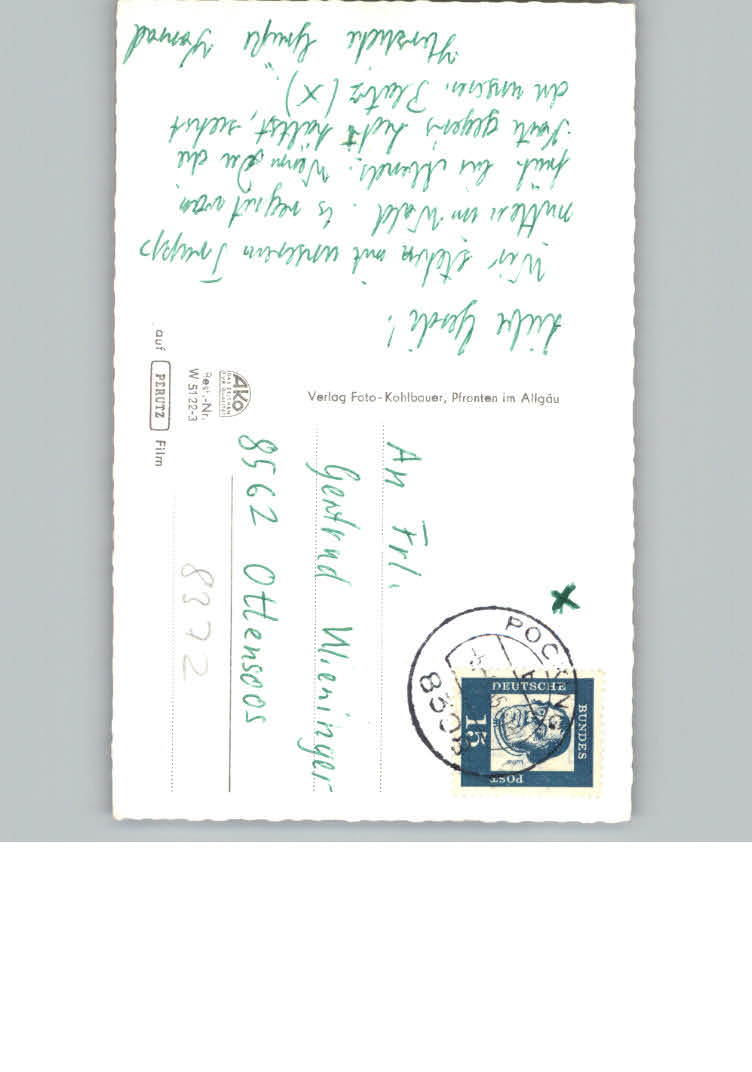 Liebe Gerda!
Wir stehen mit unserem Trupp
mitten im Wald. Es regnet von
früh bis Abends. Wenn du die
Karte gegen's Licht hältst, siehst
du unseren Platz (X).
Herzliche Grüße Konrad
Verlag Foto-Kohlbauer, Pfronten im Allgäu
AKO
Best.-Nr.
W 5122-3
auf PERUTZ Film
An Frl.
Gertrud Wieninger
8562 Ottensoos
8372
X
POCKING
8398
DEUTSCHE
BUNDES
POST
15
Luther